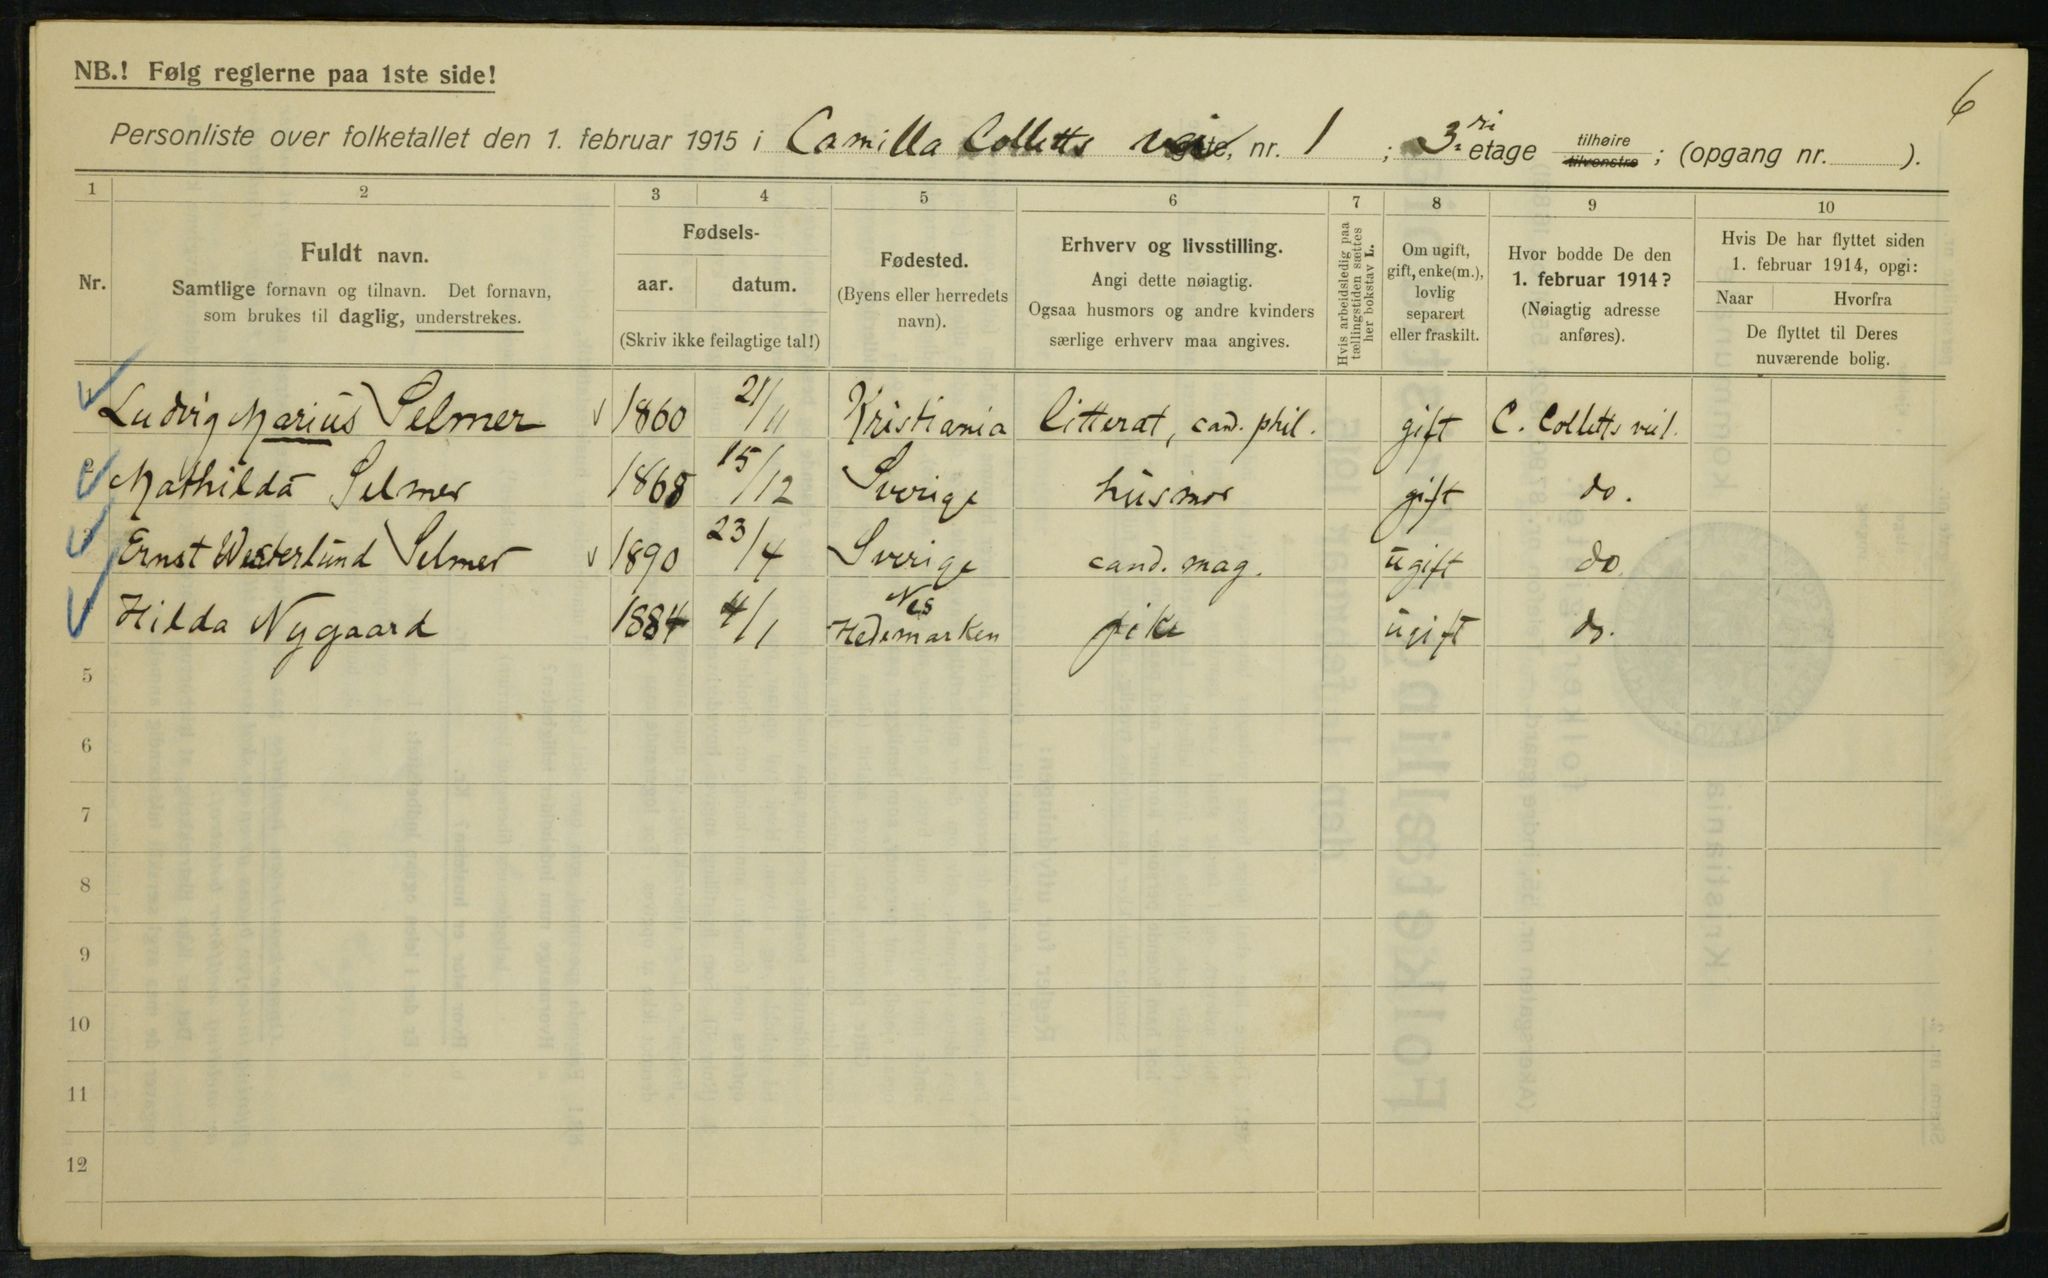 6
NB.! Følg reglerne paa 1ste side!
Personliste over folketallet den 1. februar 1915 i Camilla Colletts vei, nr. 1 ; 3. etage tilhøire tilvenstre ; (opgang nr. ).
1 2 3 4 5 6 7 8 9 10
Nr.
Fuldt navn.
Samtlige fornavn og tilnavn. Det fornavn,
som brukes til daglig, understrekes.
Fødsels-
aar. datum.
(Skriv ikke feilagtige tal!)
Fødested.
(Byens eller herredets
navn).
Erhverv og livsstilling.
Angi dette nøiagtig.
Ogsaa husmors og andre kvinders
særlige erhverv maa angives.
Hvis arbeidsledig paa
tællingstiden sættes
her bokstav L.
Om ugift,
gift, enke(m.),
lovlig
separert
eller fraskilt.
Hvor bodde De den
1. februar 1914?
(Nøiagtig adresse
anføres).
Hvis De har flyttet siden
1. februar 1914, opgi:
Naar Hvorfra
De flyttet til Deres
nuværende bolig.
Ludvig Marius Selmer 1860 21/11 Kristiania litterat, cand. phil. gift C. Colletts vei 1.
2 Mathilda Selmer 1868 15/12 Sverige husmor gift do.
Ernst Westerlund Selmer 1890 23/4 Sverige cand. mag. ugift do.
Hilda Nygaard 1884 4/1 Nes Hedemarken pike ugift do.
5
6
7
8
9
10
11
12